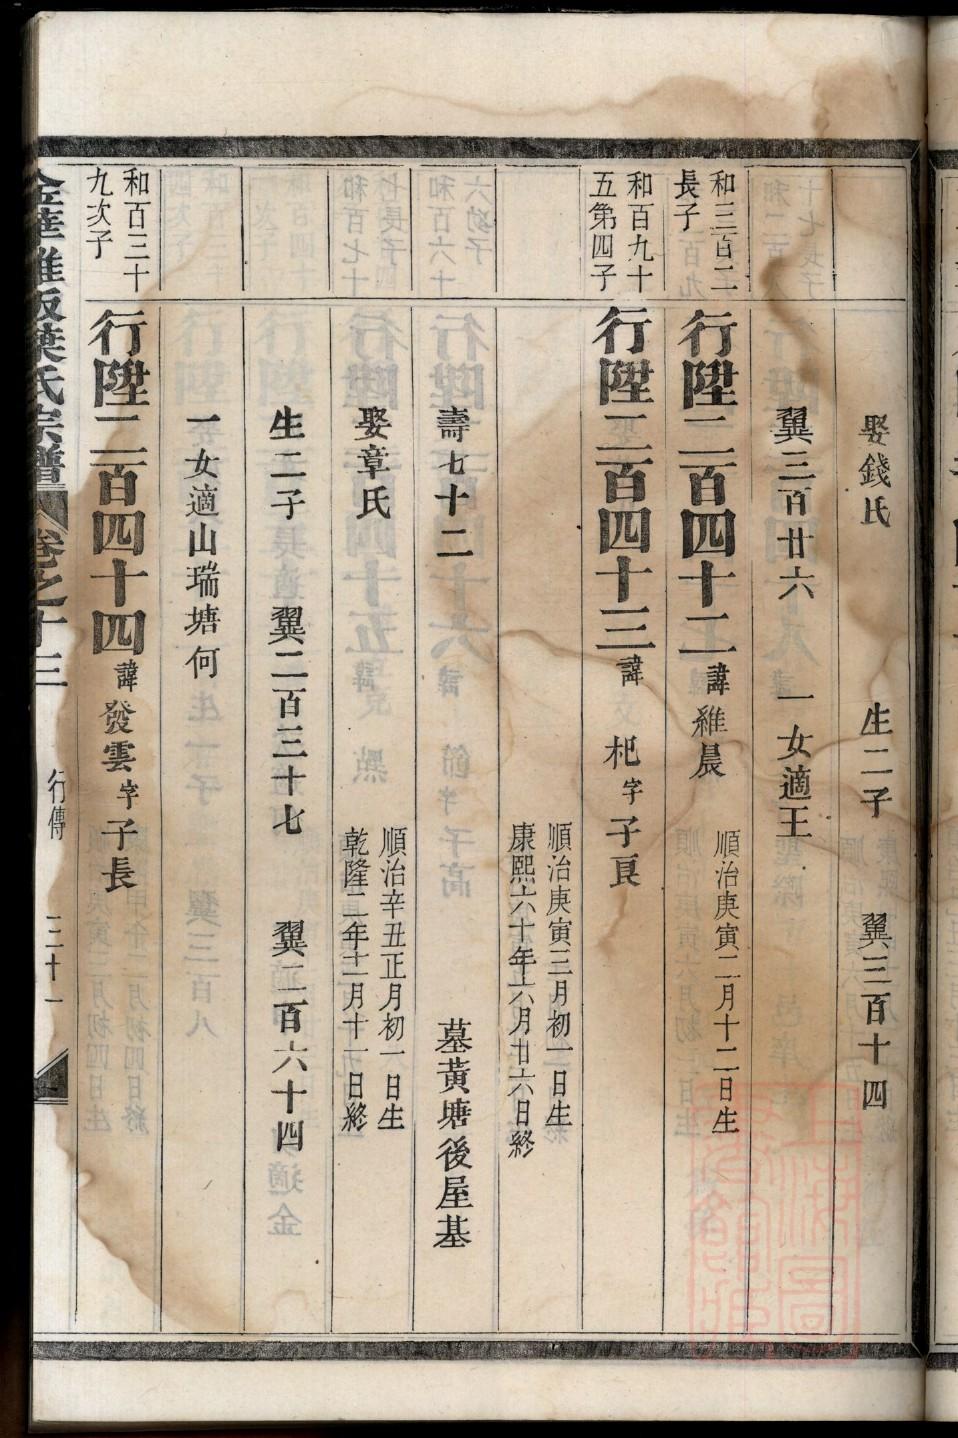 娶錢氏 生二子 翼三百十四
翼三百廿六 一女適王
和三百二
長子
行陞二百四十二 諱維晨 順治庚寅二月十二日生
和百九十
五第四子
行陞二百四十三 諱杞字子良
順治庚寅三月初一日生
康熙六十年六月廿六日終
壽七十二 墓黃塘後屋基
娶章氏
順治辛丑正月初一日生
乾隆二年十二月十一日終
生二子 翼二百三十七 翼二百六十四
一女適山瑞塘何
和百三十
九次子
行陞二百四十四 諱發雲字子長
葉氏宗譜 卷之十三 行傳 三十一